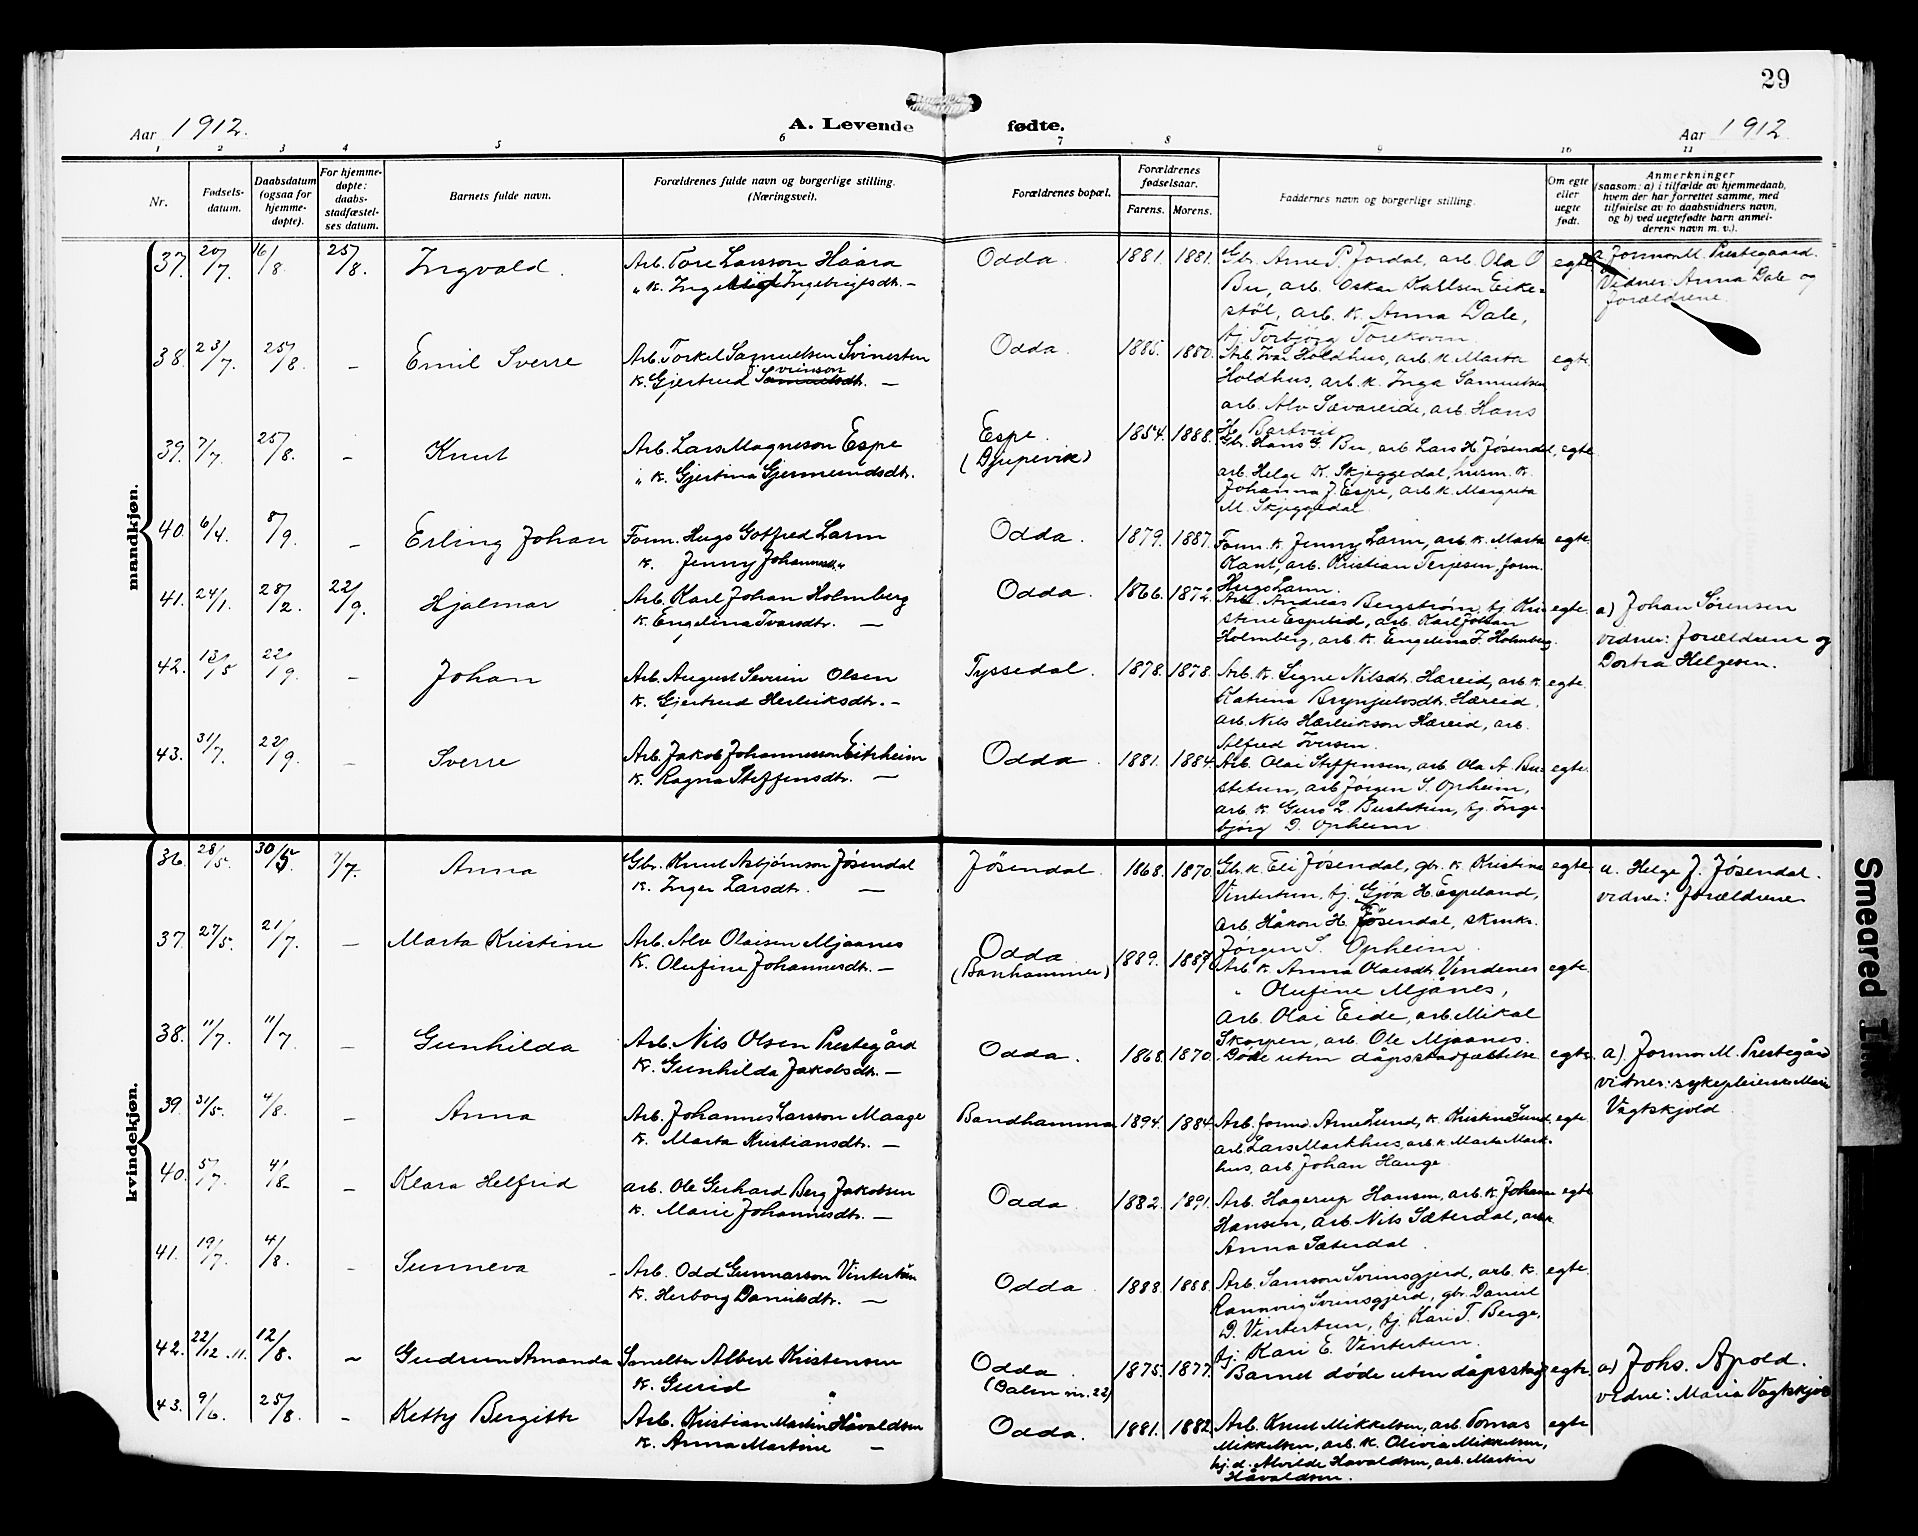 29
Aar 1912.
A. Levende fødte.
Aar 1912.
1 2 3 4 5 6 7 8 9 10 11
Nr.
Fødsels-
datum.
Daabsdatum
(ogsaa for
hjemme-
døpte).
For hjemme-
døpte:
daabs-
stadfæstel-
ses datum.
Barnets fulde navn.
Forældrenes fulde navn og borgerlige stilling.
(Næringsvei).
Forældrenes bopæl.
Forældrenes
fødselsaar.
Farens. Morens.
Faddernes navn og borgerlige stilling.
Om egte
eller
uegte
født.
Anmerkninger
(saasom: a) i tilfælde av hjemmedaab,
hvem der har forrettet samme, med
tilføielse av to daabsvidners navn,
og b) ved uegtefødte barn anmel-
derens navn m. v.).
mandkjøn.
37. 20/7 16/8 25/8. Ingvald. Arb. Tore Larsson Håara Odda. 1881. 1881. Gbr. Arne P. Jordal, arb. Ola O egte a. Jormor M. Prestegaard.
" k. Ingebrigtsdt. —
Bu, arb. Oskar Karlsen Eike-
støl, arb. k. Anna Dale,
tj. Torbjørg
Vidner: Anna Dale og
forældrene.
38. 23/7. 25/8. – Emil Sverre Arb. Torkel Samuelsen Svinesten Odda. 1885. 1880. Arb. Ivar Holdhus, arb. k. Marta egte
k. Gjertrud Sveinson —
Holdhus, arb. k. Inga Samuelsen,
arb. Alv Sævareide, arb. Hans
H. Bartveit
39. 7/7. 25/8. – Knut Arb. Lars Magneson Espe Espe. 1854. 1888. Gbr. Hans G. Bu, arb. Lars H. Jøsendal, egte
" k. Gjertina Gjermundsdt. (Djupevik)
arb. Helge K. Skjeggedal, husm. k.
Johanna J. Espe, arb. k. Margreta
M. Skjeggedal
40. 6/4. 8/9. – Erling Johan Form. Hugo Gotfred Larm Odda. 1879. 1887. Form. k. Jenny Larm, arb. k. Marta egte.
k. Jenny Johannesdt.
Kant, arb. Kristian Terjesen, form.
Hugo Larm.
41. 24/1. 28/2. 22/9. Hjalmar Arb. Karl Johan Holmberg Odda. 1866. 1872. Arb. Andreas Bergstrøm, tj. Kri- egte.
k. Engelina Ivarsdtr. —
stine Espelid, arb. Karl Johan
Holmberg, arb. k. Engelina F. Holmberg.
a) Johan Sørensen
vidner: forældrene og
Dortea Helgesen.
42. 13/5 22/9. – Johan Arb. August Severin Olsen Tyssedal. 1878. 1878. Arb. k. Signe Nilsdt. Hæreid, arb. k. egte.
k. Gjertrud Herleiksdtr. –
Katrina Brynjulvsdt. Hæreid,
arb. Nils Hærleikson Hæreid, arb.
Alfred Iversen.
43. 31/7. 22/9. – Sverre Arb. Jakob Johannesson Eitrheim Odda. 1881. 1884. Arb. Olai Steffensen, arb. Ola A. Bu- egte.
k. Ragna Steffensdtr. —
stetun, arb Jørgen S. Opheim,
arb. k. Guro L. Bustetun, tj. Inge-
bjørg D. Opheim.
kvindekjøn.
36. 28/5. 30/5. 7/7. Anna Gbr. Knut Asbjørnson Jøsendal Jøsendal. 1868. 1870. Gbr. k. Eli Jøsendal, gbr. k. Kristine egte. a. Helge J. Jøsendal.
k. Inger Larsdtr. —
Vintertun, tj. Gjøa H. Espeland,
arb. Håkon H. Jøsendal,
Jørgen S. Opheim.
vidner: forældrene
37. 27/5. 21/7. – Marta Kristine Arb. Alv Olaisen Mjaanes Odda 1889. 1887. Arb. k. Anna Olaisdt. Vindenes egte.
k. Olufine Johannesdt. — (Banhammer)
" Olufine Mjånes,
arb. Olai Eide, arb. Mikal
Skorpen, arb. Ole Mjaanes.
38. 11/7. 11/7. – Gunhilda Arb. Nils Olsen Prestegård Odda. 1868. 1870. Døde uten dåpsstadfæstelse egte. a). Jormor M. Prestegård
k. Gunhilda Jakobsdt. —
vidner: sykepleierske Maria
Vagtskjold.
39. 31/5. 4/8. – Anna Arb. Johannes Larsson Maage Bandhammar. 1894. 1884. Arb. form. Arne Lund, k. Kristina Lund, egte.
k. Marta Kristiansdt. —
arb. Lars Markhus, arb. k. Marta Mark-
hus, arb. Johan Hauge.
40. 5/7. 4/8. – Klara Helfrid arb. Ole Gerhard Berg Jakobsen Odda. 1882. 1891. Arb. Hagerup Hansen, arb. k. Johan- egte.
k. Marie Johannesdtr. —
Hansen, arb. Nils Sæterdal, arb. k.
Anna Sæterdal.
41. 19/7. 4/8. – Sunneva Arb. Odd Gunnarson Vintertun Odda. 1888. 1888. Arb. Samson Svinsgjerd, arb. k. egte.
k. Herborg Danielsdtr. —
Rannveig Svinsgjerd, gbr. Daniel
D. Vintertun, tj. Kari T. Berge,
tj. Kari E. Vintertun.
42. 22/12.11. 12/8. – Gudrun Amanda Smelter Albert Kristensen Odda. 1875. 1877. Barnet døde uten dåpsstadf. egte. a) Johs. Apold.
k. Gurid " (Dalen nr. 22)
vidne: Maria Vagtskjold
43. 9/6. 25/8. – Ketty Bergitte Arb. Kristian Martin Håvaldsen Odda. 1881. 1882. Arb. Knut Mikkelsen, arb. Tomas egte
k. Anna Martine —
Mikkelsen, arb. k. Olivia Mikkelsen,
tj. d. Alvilde Havaldsen, arb. Martin
Håvaldsen.
Smeared